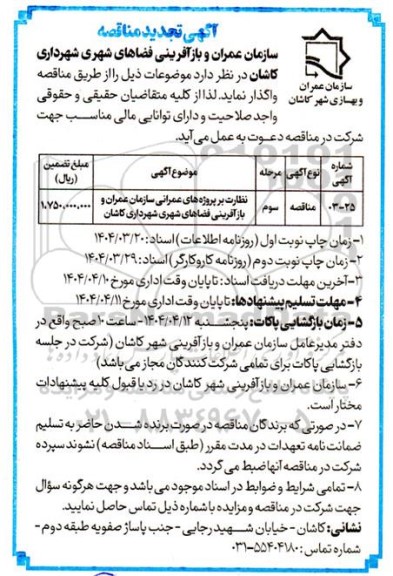 آگهی تجدید مناقصه
سازمان عمران
وبهسازی شهر کاشان
سازمان عمران و بازآفرینی فضاهای شهری شهرداری
کاشان در نظر دارد موضوعات ذیل را از طریق مناقصه
واگذار نماید. لذا از کلیه متقاضیان حقیقی و حقوقی
واجد صلاحیت و دارای توانایی مالی مناسب جهت
شرکت در مناقصه دعوت به عمل می‌آید.
شماره آگهی | نوع آگهی | مرحله | موضوع آگهی | مبلغ تضمین (ریال)
۰۳-۲۵ | مناقصه | سوم | نظارت بر پروژه های عمرانی سازمان عمران و بازآفرینی فضاهای شهری شهرداری کاشان | ۱،۷۵۰،۰۰۰،۰۰۰
۱- زمان چاپ نوبت اول (روزنامه اطلاعات) اسناد: ۱۴۰۴/۰۳/۲۰
۲- زمان چاپ نوبت دوم (روزنامه کاروکارگر) اسناد: ۱۴۰۴/۰۳/۲۹
۳- آخرین مهلت دریافت اسناد: تا پایان وقت اداری مورخ ۱۴۰۴/۰۴/۱۰
۴- مهلت تسلیم پیشنهادها: تا پایان وقت اداری مورخ ۱۴۰۴/۰۴/۱۱
۵- زمان بازگشایی پاکات: پنجشنبه ۱۴۰۴/۰۴/۱۲- ساعت ۱۰ صبح واقع در
دفتر مدیرعامل سازمان عمران و بازآفرینی شهر کاشان (شرکت در جلسه
بازگشایی پاکات برای تمامی شرکت کنندگان مجاز می‌باشد)
۶- سازمان عمران و بازآفرینی شهر کاشان در رد یا قبول کلیه پیشنهادات
مختار است.
۷- در صورتی که برندگان مناقصه در صورت برنده شدن حاضر به تسلیم
ضمانت نامه تعهدات در مدت مقرر (طبق اسناد مناقصه) نشوند سپرده
شرکت در مناقصه آنها ضبط می گردد.
۸- تمامی شرایط و ضوابط در اسناد موجود می باشد و جهت هرگونه سؤال
جهت شرکت در مناقصه و مزایده با شماره ذیل تماس حاصل نمایید.
نشانی: کاشان - خیابان شهید رجایی - جنب پاساژ صفویه طبقه دوم -
شماره تماس: ۵۵۴۰۴۱۸۰-۰۳۱
۰۲۱-۸۸۳۴۹۶۷۰-۵